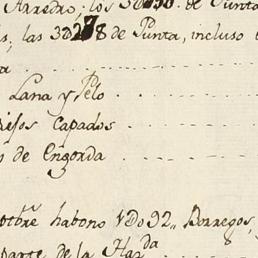 Arredro; los 3D150. de Punta
s, las 3D278 de Punta, incluso
a
Lana y Pelo
capados
de Engorda
habono 1D092,, Borregos,
parte de la Haz.da